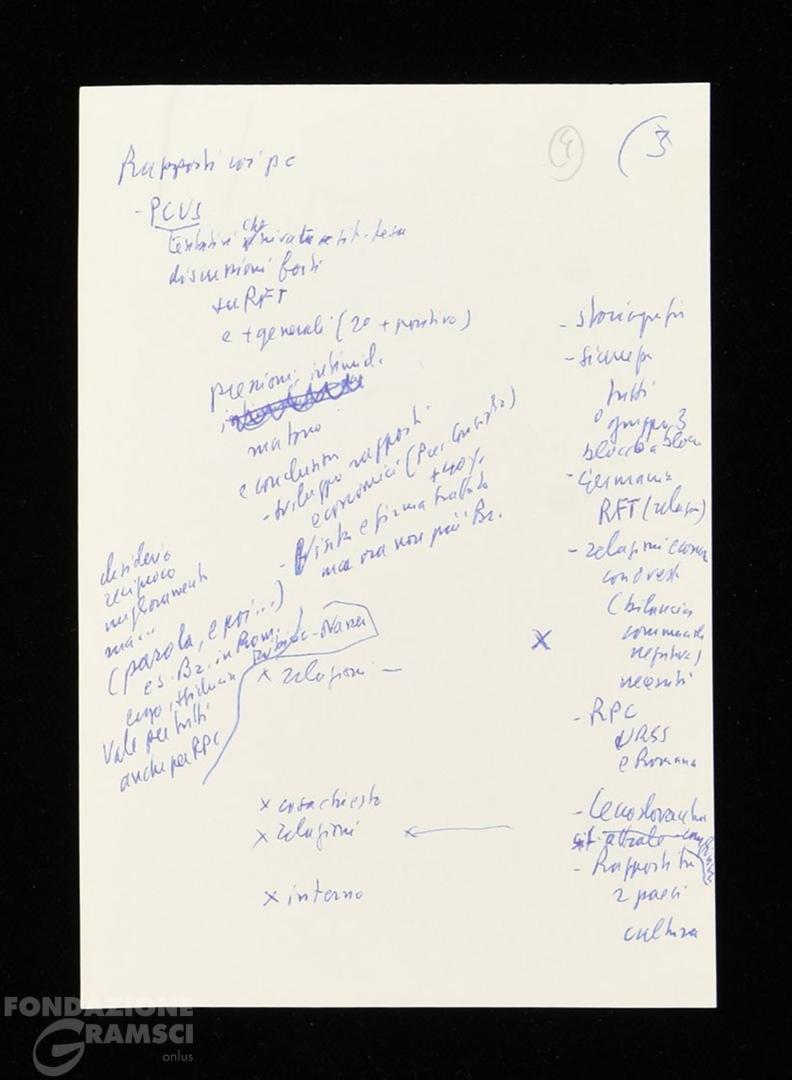 (4) (3
Rapporti coi pc
- PCUS
tentativi che
discussioni forti
su RFT
e + generali (20 + positivo)
pressioni, intimid.
ma tono
e conclusioni
- sviluppo rapporti
economici (
+40%.
- Visita e firma trattato
ma ora non più Br.
desiderio
reciproco
miglioramento
ma...
(parola, e poi...)
es. Br. in Rom.
Vale per tutti
anche per RPC
x relazioni -
x cosa chiesto
x relazioni
x interno
x
- storiografia
tutti
o gruppo 3
blocco a blocco
- Germania
RFT (relazioni)
- relazioni econom
con ovest
(bilancia
commerciale
negativa)
necessità
- RPC
URSS
e Romania
- Cecoslovacchia
sit. attuale
- Rapporti tra
2 paesi
cultura
FONDAZIONE
GRAMSCI
onlus